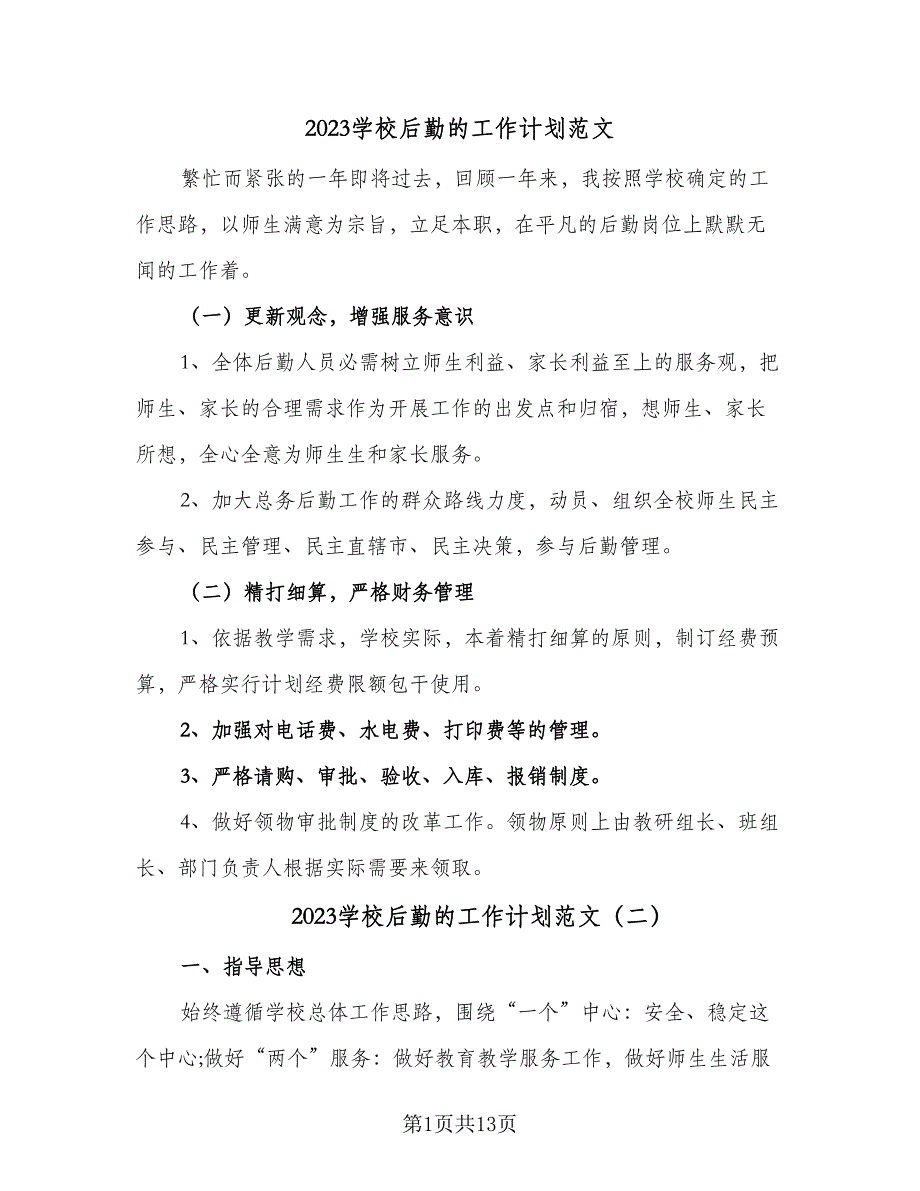 2023学校后勤的工作计划范文
繁忙而紧张的一年即将过去，回顾一年来，我按照学校确定的工
作思路，以师生满意为宗旨，立足本职，在平凡的后勤岗位上默默无
闻的工作着。
（一）更新观念，增强服务意识
1、全体后勤人员必需树立师生利益、家长利益至上的服务观，把
师生、家长的合理需求作为开展工作的出发点和归宿，想师生、家长
所想，全心全意为师生生和家长服务。
2、加大总务后勤工作的群众路线力度，动员、组织全校师生民主
参与、民主管理、民主直辖市、民主决策，参与后勤管理。
（二）精打细算，严格财务管理
1、依据教学需求，学校实际，本着精打细算的原则，制订经费预
算，严格实行计划经费限额包干使用。
2、加强对电话费、水电费、打印费等的管理。
3、严格请购、审批、验收、入库、报销制度。
4、做好领物审批制度的改革工作。领物原则上由教研组长、班组
长、部门负责人根据实际需要来领取。
2023学校后勤的工作计划范文（二）
一、指导思想
始终遵循学校总体工作思路，围绕“一个”中心：安全、稳定这
个中心;做好“两个”服务：做好教育教学服务工作，做好师生生活服
第1页共13页